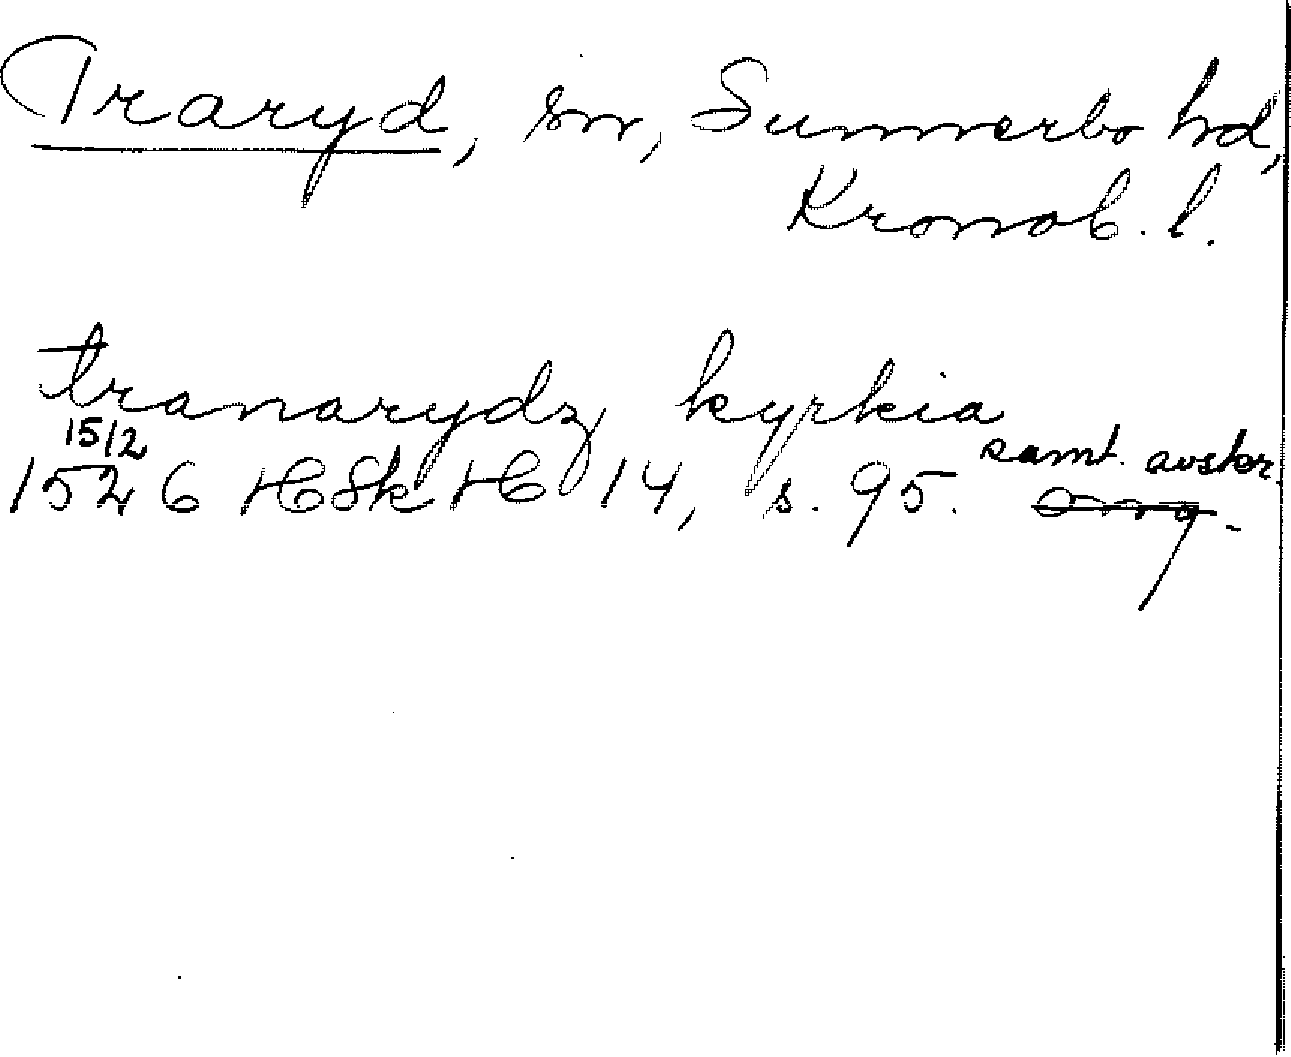 Traryd, sn, Sunnerbo hd,
Kronob. l.
tranarydz kyrkia
15/2
samt. avskr.
1526 HSkH 14, s. 95. orig.